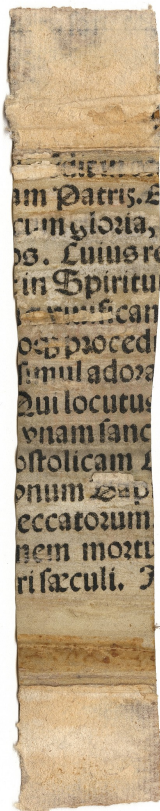 am Patris. E
cum gloria,
os. Cuius re
in Spiritu
vivifican
oqꝫ procedi
simul adora
Qui locutus
vnam sanc
ostolicam E
onum Bap
eccatorum
nem mortu
ri sæculi. A